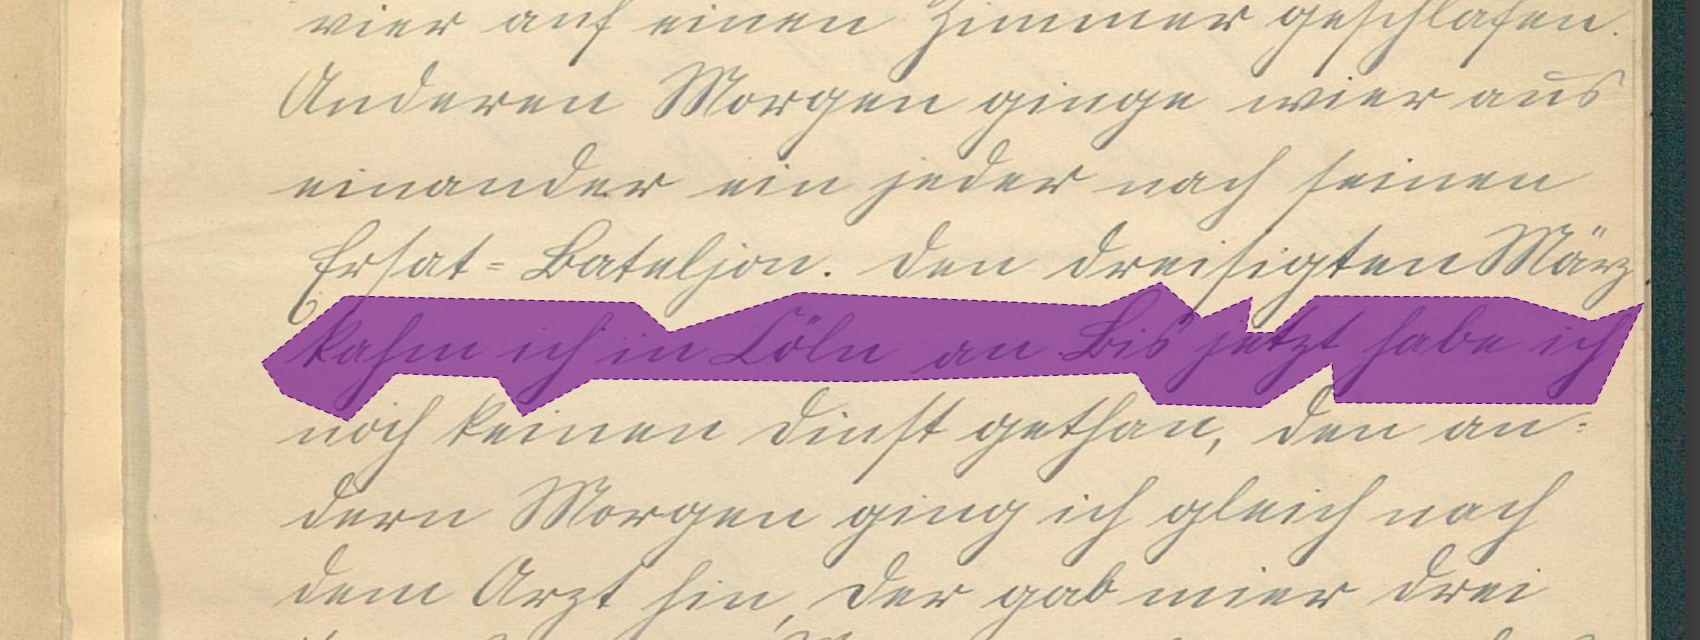 vier auf einen Zimmer geschlafen.
Anderen Morgen ginge wier aus
einander ein jeder nach seinen
Ersat-Bateljon. den dreisigten März.
kahm ich in Cöln an. Bis jetzt habe ich
noch keinen dinst gethan, den an-
dern Morgen ging ich gleich nach
dem Arzt hin, der gab mier drei